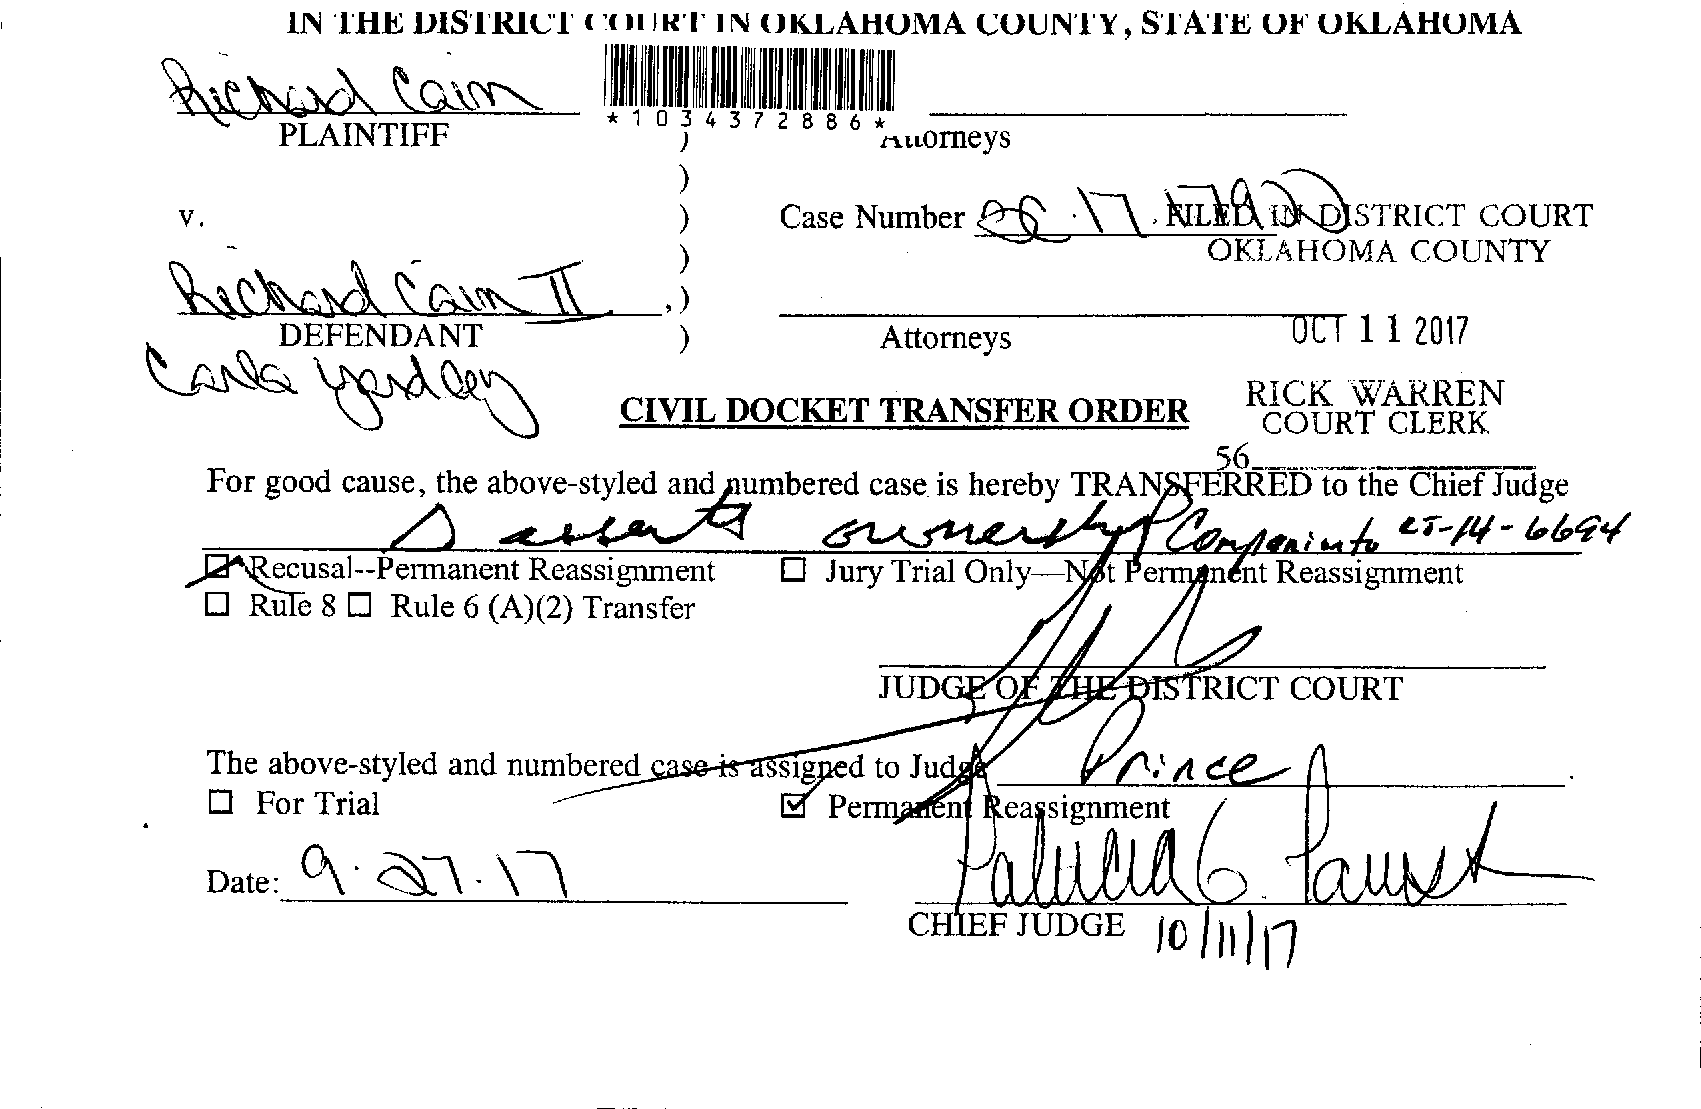 IN THE DISTRICT COURT IN OKLAHOMA COUNTY, STATE OF OKLAHOMA
Richard Cain
*1034372886*
PLAINTIFF ) Attorneys
)
v. ) Case Number
FILED IN DISTRICT COURT
OKLAHOMA COUNTY
)
Richard Cain II ,)
DEFENDANT ) Attorneys
OCT 11 2017
Carla Yardley
RICK WARREN
COURT CLERK
CIVIL DOCKET TRANSFER ORDER
56
For good cause, the above-styled and numbered case is hereby TRANSFERRED to the Chief Judge
ownership Companion to CJ-14-6694
☑ Recusal--Permanent Reassignment ☐ Jury Trial Only—Not Permanent Reassignment
☐ Rule 8 ☐ Rule 6 (A)(2) Transfer
JUDGE OF THE DISTRICT COURT
The above-styled and numbered case is assigned to Judge Prince.
☐ For Trial ☑ Permanent Reassignment
Date: 9.27.17 Patricia G. Parrish
CHIEF JUDGE 10/11/17